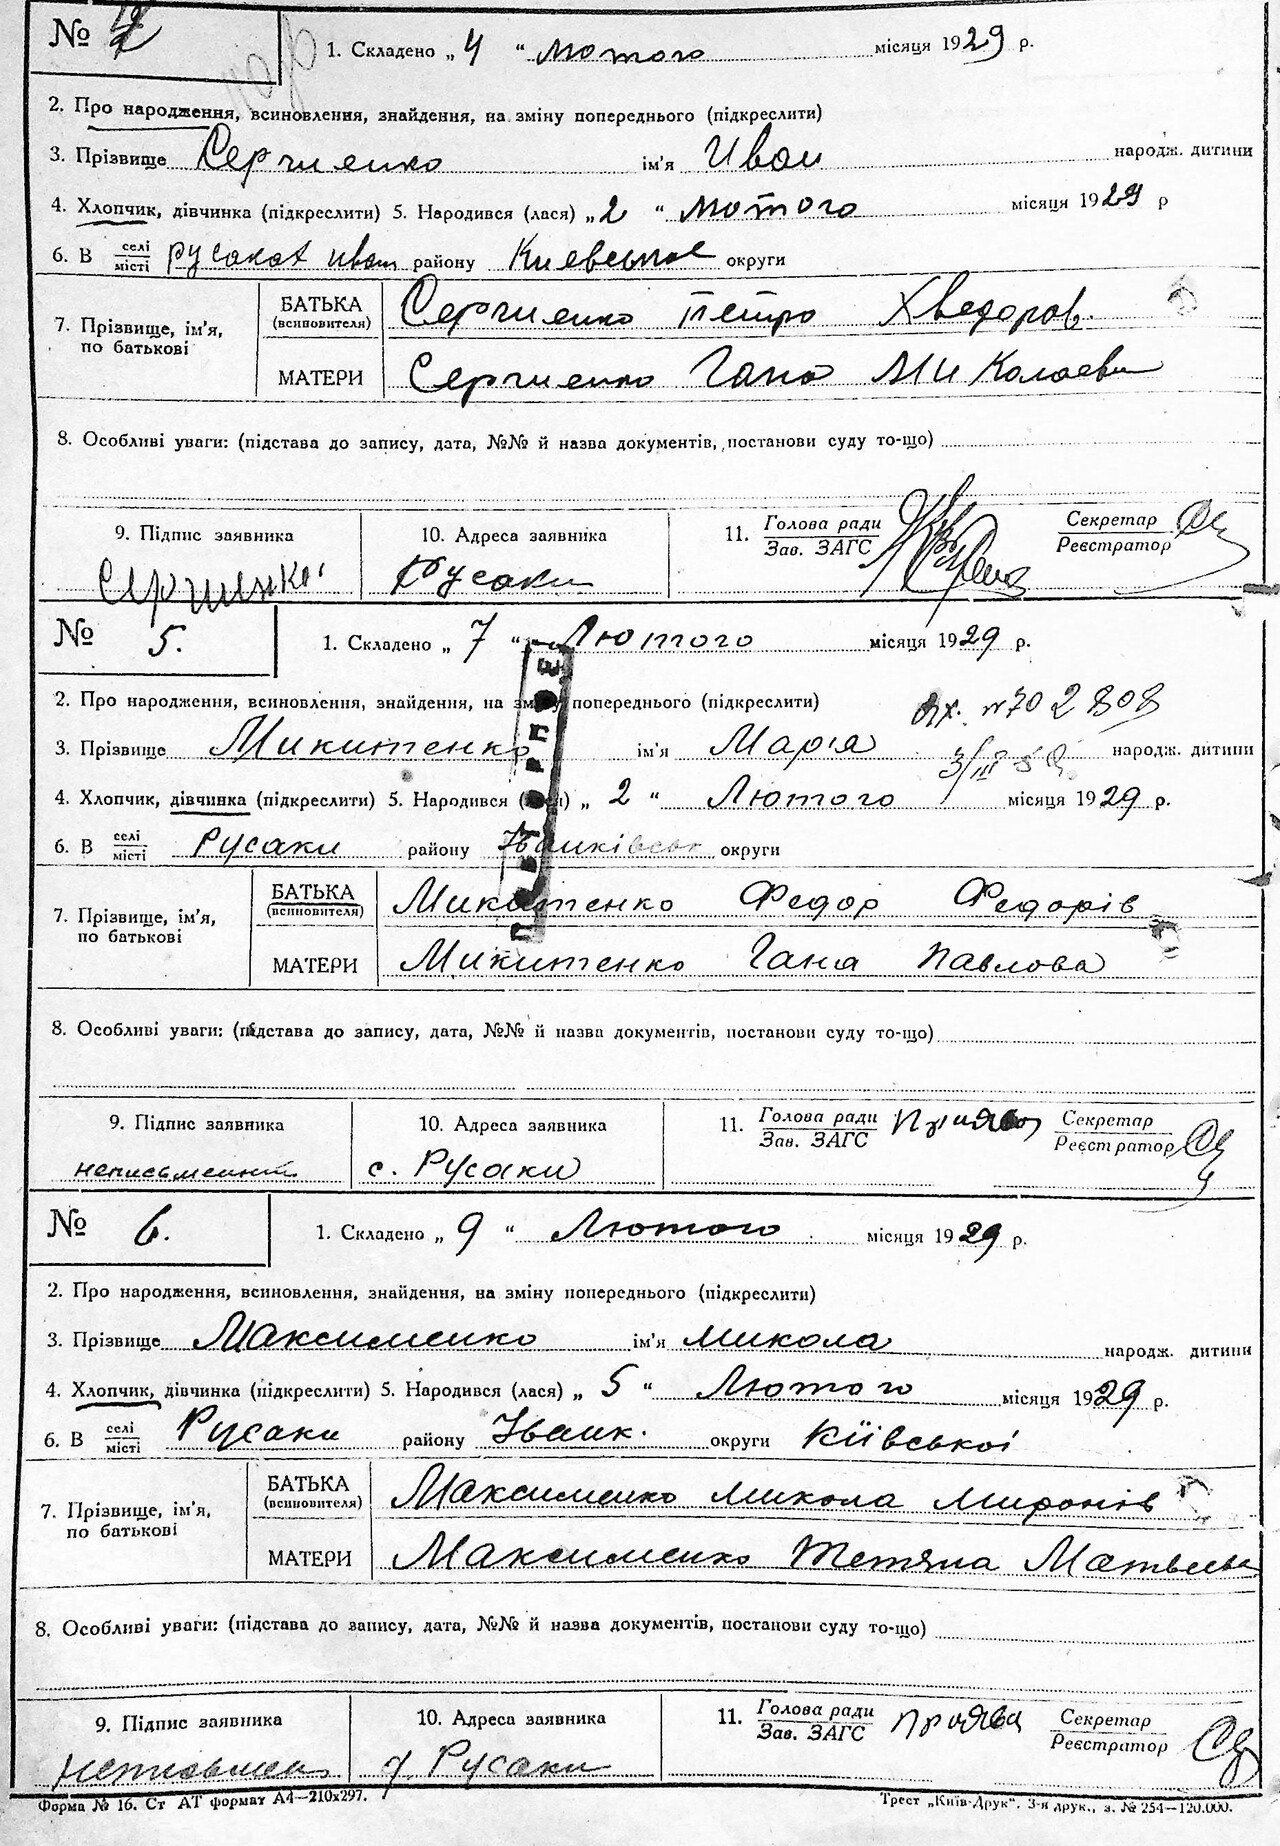 №
1. Складено „ 4 “ лютого місяця 1929 р.
2. Про народження, всиновлення, знайдення, на зміну попереднього (підкреслити)
3. Прізвище Сергиенко ім'я Иван народж. дитини
4. Хлопчик, дівчинка (підкреслити) 5. Народився (лася) „ 2 “ лютого місяця 1929 р
6. В селі/місті Русаках Иван району Киевськое округи
7. Прізвище, ім'я, по батькові
БАТЬКА (всиновителя) Сергиенко Петро Хведоров.
МАТЕРИ Сергиенко Гана Миколаевн
8. Особливі уваги: (підстава до запису, дата, №№ й назва документів, постанови суду то-що)
9. Підпис заявника
10. Адреса заявника
11. Голова ради/Зав. ЗАГС
Секретар/Реєстратор
Сергиенко Русаки
№ 5.
1. Складено „ 7 “ Лютого місяця 1929 р.
2. Про народження, всиновлення, знайдення, на зміну попереднього (підкреслити)
Вх. № 70 2808
3. Прізвище Микитенко ім'я Марія народж. дитини
4. Хлопчик, дівчинка (підкреслити) 5. Народився (лася) „ 2 “ Лютого місяця 1929 р.
6. В селі/місті Русаки району Іванківськ округи
ПОВТОРНОЕ
7. Прізвище, ім'я, по батькові
БАТЬКА (всиновителя) Микитенко Федор Федорів
МАТЕРИ Микитенко Гана Павлова
8. Особливі уваги: (підстава до запису, дата, №№ й назва документів, постанови суду то-що)
9. Підпис заявника
10. Адреса заявника
11. Голова ради/Зав. ЗАГС
Секретар/Реєстратор
неписьменний с. Русаки
№ 6.
1. Складено „ 9 “ Лютого місяця 1929 р.
2. Про народження, всиновлення, знайдення, на зміну попереднього (підкреслити)
3. Прізвище Максименко ім'я Микола народж. дитини
4. Хлопчик, дівчинка (підкреслити) 5. Народився (лася) „ 5 “ Лютого місяця 1929 р.
6. В селі/місті Русаки району Іванк. округи Київської
7. Прізвище, ім'я, по батькові
БАТЬКА (всиновителя) Максименко Микола Миронів
МАТЕРИ Максименко Тетяна Матвіева
8. Особливі уваги: (підстава до запису, дата, №№ й назва документів, постанови суду то-що)
9. Підпис заявника
10. Адреса заявника
11. Голова ради/Зав. ЗАГС
Секретар/Реєстратор
Русаки
Форма № 16. Ст АТ формат А4—210х297.
Трест „Київ-Друк“. 3-я друк., з. № 254—120.000.